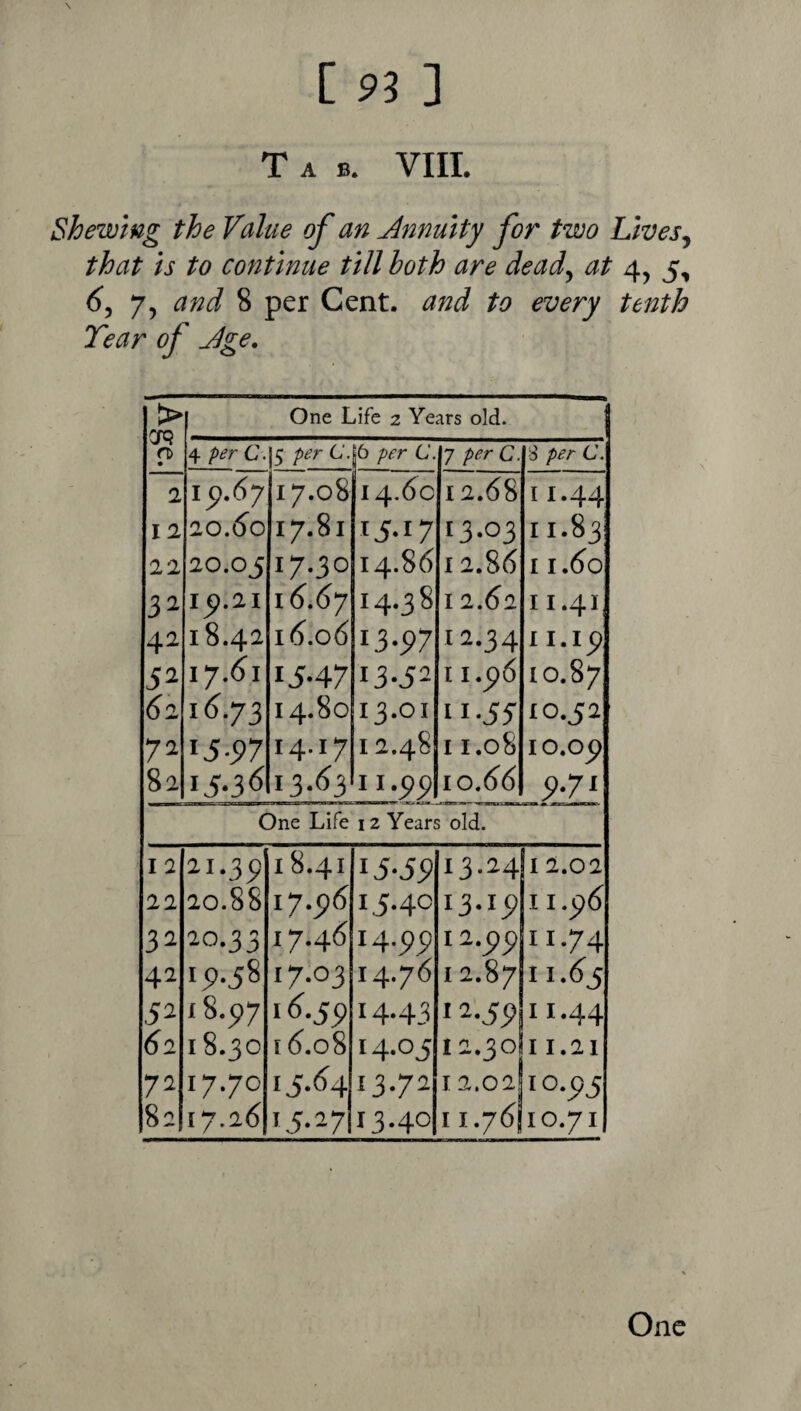 [ 93 ]
TAB. VIII.
Shewing the Value of an Annuity for two Lives,
that is to continue till both are dead, at 4, 5,
6, 7, and 8 per Cent. and to every tenth
Year of Age.
Age One Life 2 Years old.
4 per C. 5 per C. 6 per C. 7 per C. 8 per C.
2 19.67 17.08 14.60 12.68 11.44
12 20.60 17.81 15.17 13.03 11.83
22 20.05 17.30 14.86 12.86 11.60
32 19.21 16.67 14.38 12.62 11.41
42 18.42 16.06 13.97 12.34 11.19
52 17.61 15.47 13.52 11.96 10.87
62 16.73 14.80 13.01 11.55 10.52
72 15.97 14.17 12.48 11.08 10.09
82 15.36 13.63 11.99 10.66 9.71
One Life 12 Years old.
12 21.39 18.41 15.59 13.24 12.02
22 20.88 17.96 15.40 13.19 11.96
32 20.33 17.46 14.99 12.99 11.74
42 19.58 17.03 14.76 12.87 11.65
52 18.97 16.59 14.43 12.59 11.44
62 18.30 16.08 14.05 12.30 11.21
72 17.70 15.64 13.72 12.02 10.95
82 17.26 15.27 13.40 11.76 10.71
One